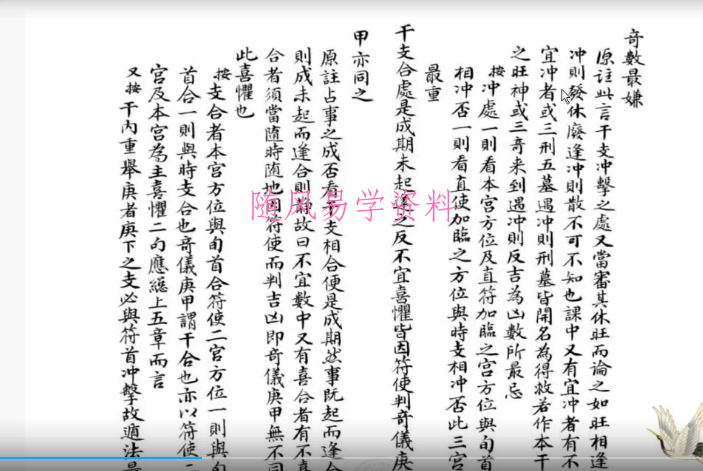 奇數最嫌
原註此言干支冲擊之處又當審其休旺而論之如旺相逢
冲則發休廢逢冲則散不可不知也課中又有宜冲者有不
宜冲者或三刑五墓遇冲則刑墓皆開名為得救若作本干
之旺神或三奇来到遇冲則反吉為凶數所最忌
按冲處一則看本宮方位及直符加臨之宮方位與旬首
相冲否一則看直使加臨之方位與時支相冲否此三宮
最重
干支合處是成期未起 之反不宜喜懼皆因符使判奇儀庚
甲亦同之
原註占事之成否看干支相合便是成期然事既起而逢合
則成未起而逢合則 故曰不宜數中又有喜合者有不喜
合者須當隨時隨地因符使而判吉凶即奇儀庚甲無不同
此喜懼也
按支合者本宮方位與旬首合符使二宮方位一則與旬
首合一則與時支合也奇儀庚甲謂干合也亦以符使二
宮及本宮為主喜懼二句應總上五章而言
又按干內重舉庚者庚下之支必與符首冲擊故適法最
随风易学资料